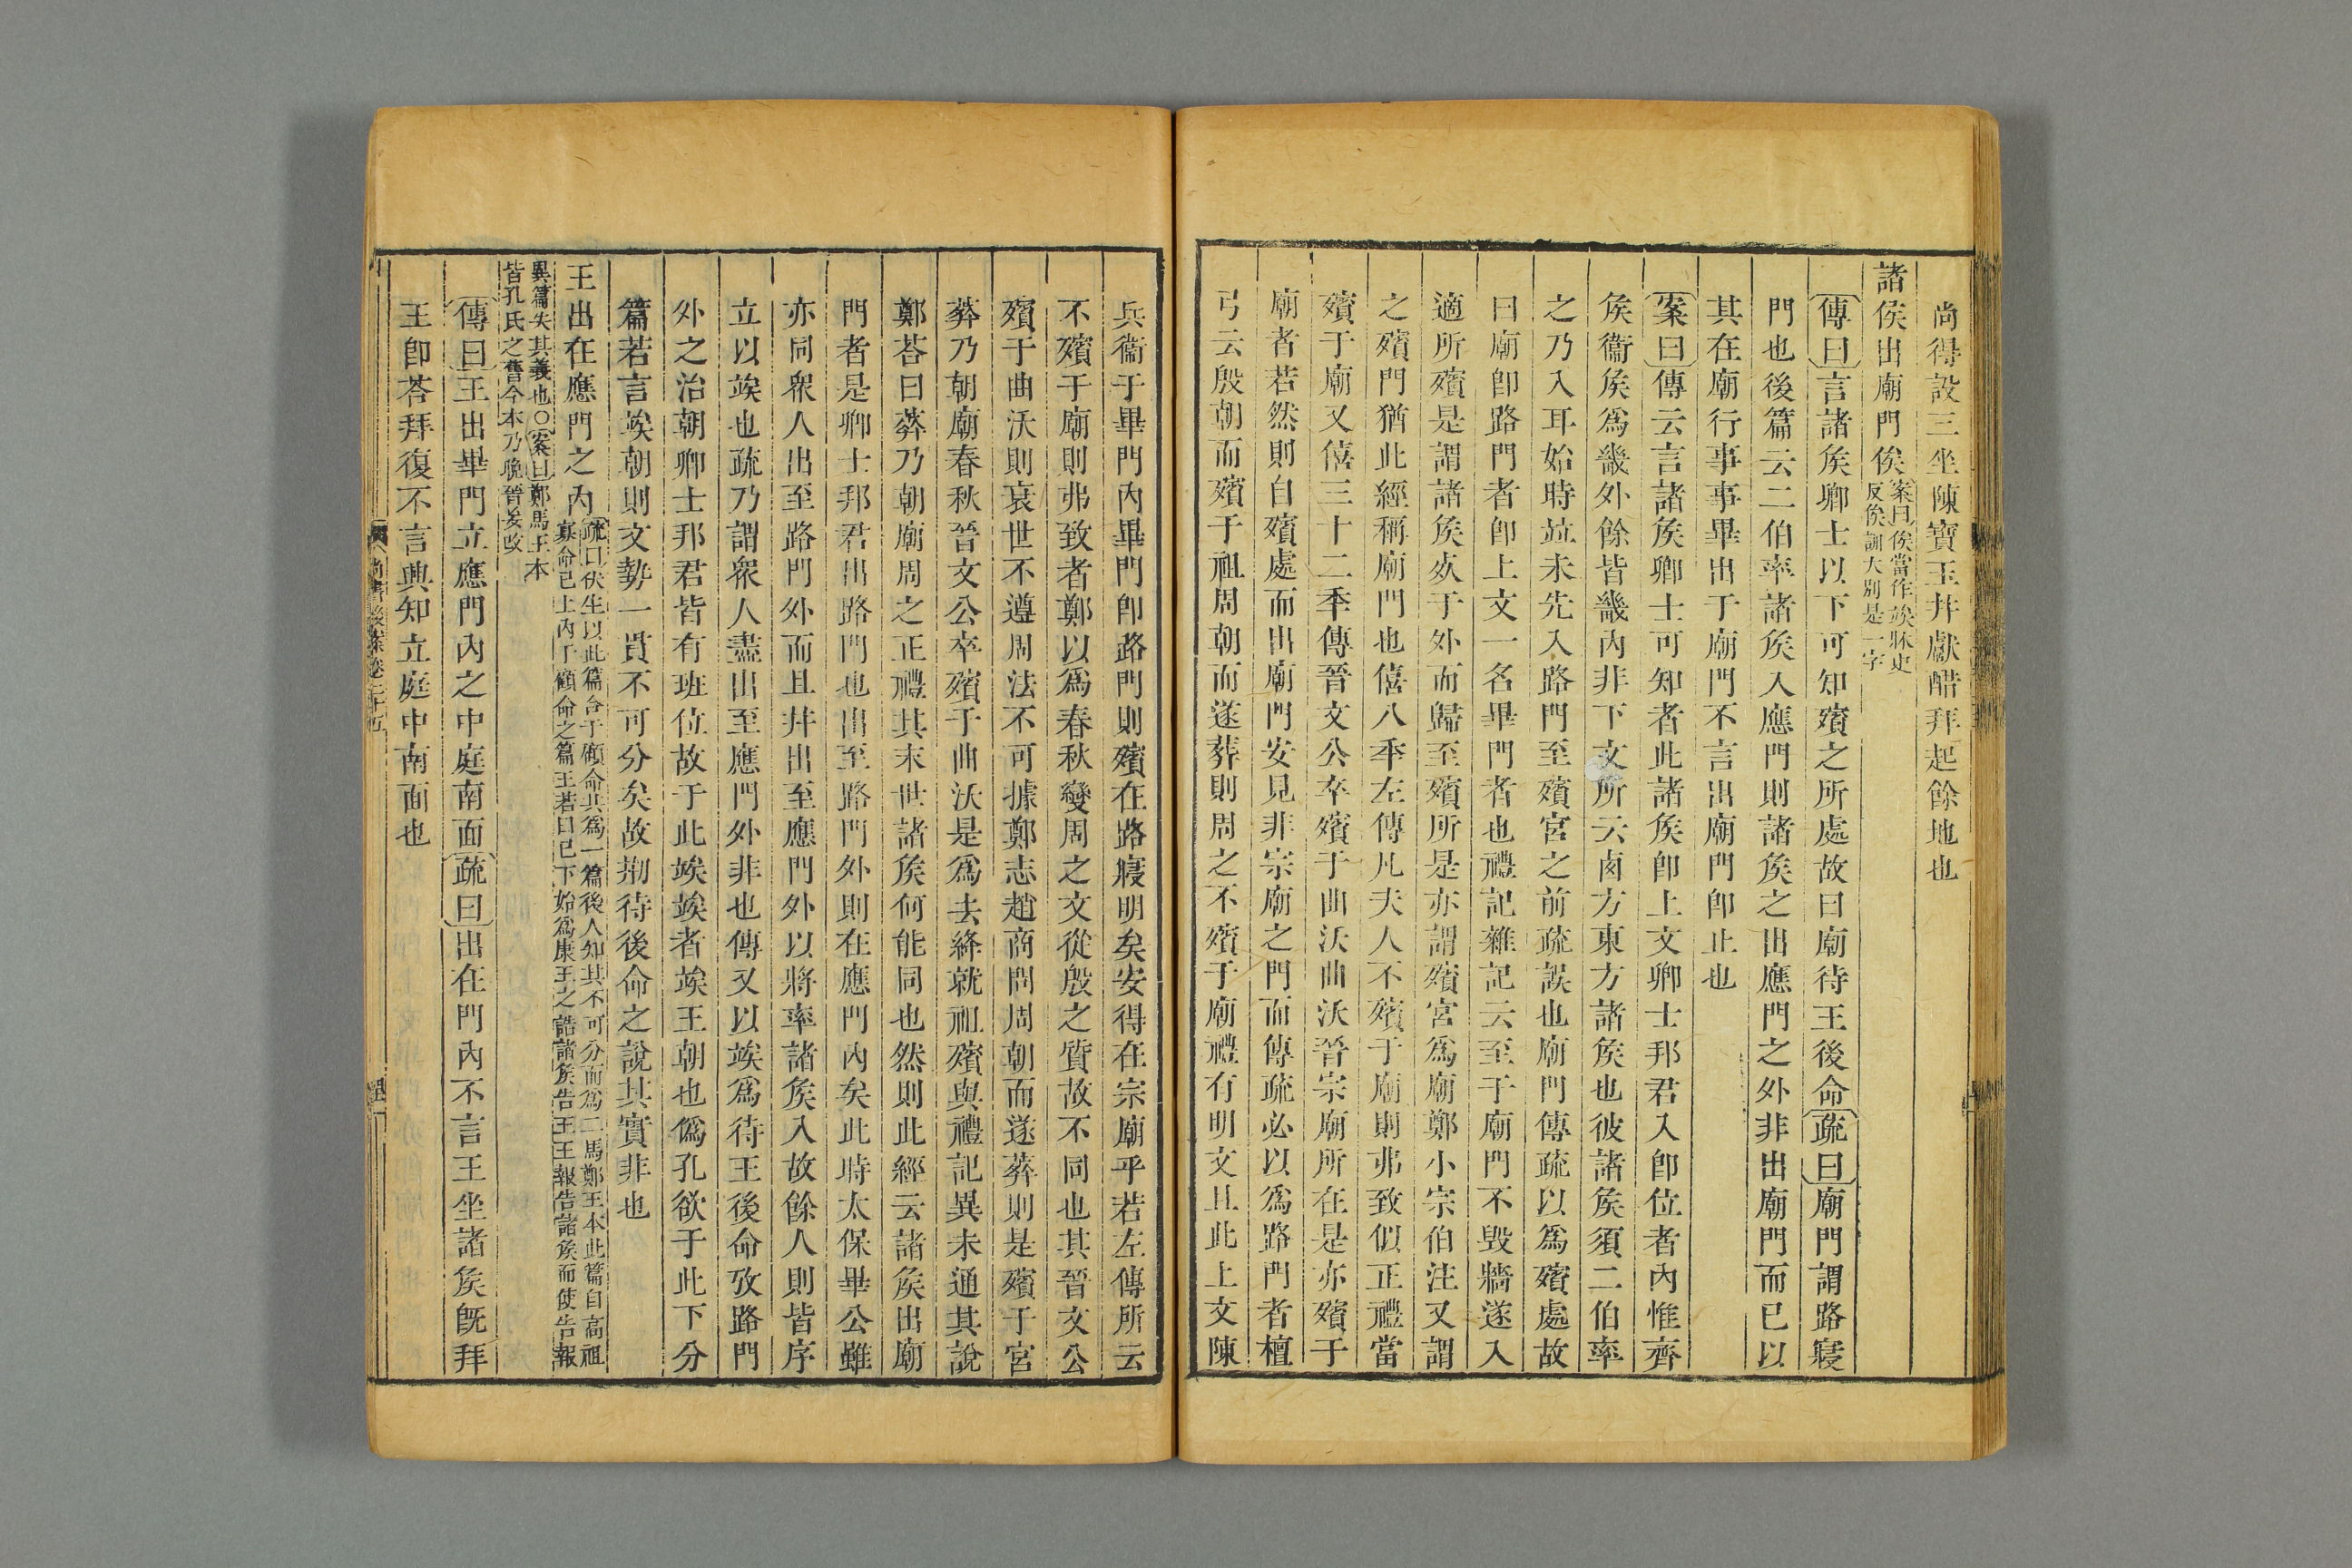 尚得設三坐陳寶玉幷獻醋拜起餘地也
諸侯出廟門俟案曰俟當作竢牀史反俟訓大別是一字
傳曰言諸矦卿士以下可知殯之所處故曰廟待王後命疏曰廟門謂路寢
門也後篇云二伯率諸矦入應門則諸矦之出應門之外非出廟門而已以
其在廟行事事畢出于廟門不言出廟門卽止也
案曰傳云言諸矦卿士可知者此諸矦卽上文卿士邦君入卽位者內惟齊
矦衞矦爲畿外餘皆畿內非下文所云卤方東方諸矦也彼諸矦須二伯率
之乃入耳始時竝未先入路門至殯宮之前疏誤也廟門傳疏以爲殯處故
曰廟卽路門者卽上文一名畢門者也禮記雜記云至于廟門不毀牆遂入
適所殯是謂諸矦㱙于外而歸至殯所是亦謂殯宮爲廟鄭小宗伯注又謂
之殯門猶此經稱廟門也僖八秊左傳凡夫人不殯于廟則弗致似正禮當
殯于廟又僖三十二秊傳晉文公卒殯于曲沃曲沃晉宗廟所在是亦殯于
廟者若然則自殯處而出廟門安見非宗廟之門而傳疏必以爲路門者檀
弓云殷朝而殯于祖周朝而遂葬則周之不殯于廟禮有明文且此上文陳
兵衞于畢門內畢門卽路門則殯在路寢明矣安得在宗廟乎若左傳所云
不殯于廟則弗致者鄭以爲春秋變周之文從殷之質故不同也其晉文公
殯于曲沃則衰世不遵周法不可據鄭志趙商問周朝而遂葬則是殯于宮
葬乃朝廟春秋晉文公卒殯于曲沃是爲去絳就祖殯與禮記異未通其說
鄭荅曰葬乃朝廟周之正禮其末世諸矦何能同也然則此經云諸矦出廟
門者是卿士邦君出路門也出至路門外則在應門內矣此時太保畢公雖
亦同衆人出至路門外而且幷出至應門外以將率諸矦入故餘人則皆序
立以竢也疏乃謂衆人盡出至應門外非也傳又以竢爲待王後命攷路門
外之治朝卿士邦君皆有班位故于此竢竢者竢王朝也僞孔欲于此下分
篇若言竢朝則文勢一貫不可分矣故剏待後命之說其實非也
王出在應門之內疏曰伏生以此篇合于顧命共爲一篇後人知其不可分而爲二馬鄭王本此篇自高祖寡命已上內于顧命之篇王若曰已下始爲康王之誥諸矦告王王報告諸矦而使告報
異篇失其義也〇案曰鄭馬王本皆孔氏之舊今本乃晚晉妄改
傳曰王出畢門立應門內之中庭南面疏曰出在門內不言王坐諸矦旣拜
王卽荅拜復不言興知立庭中南面也
尚書後案卷二十五